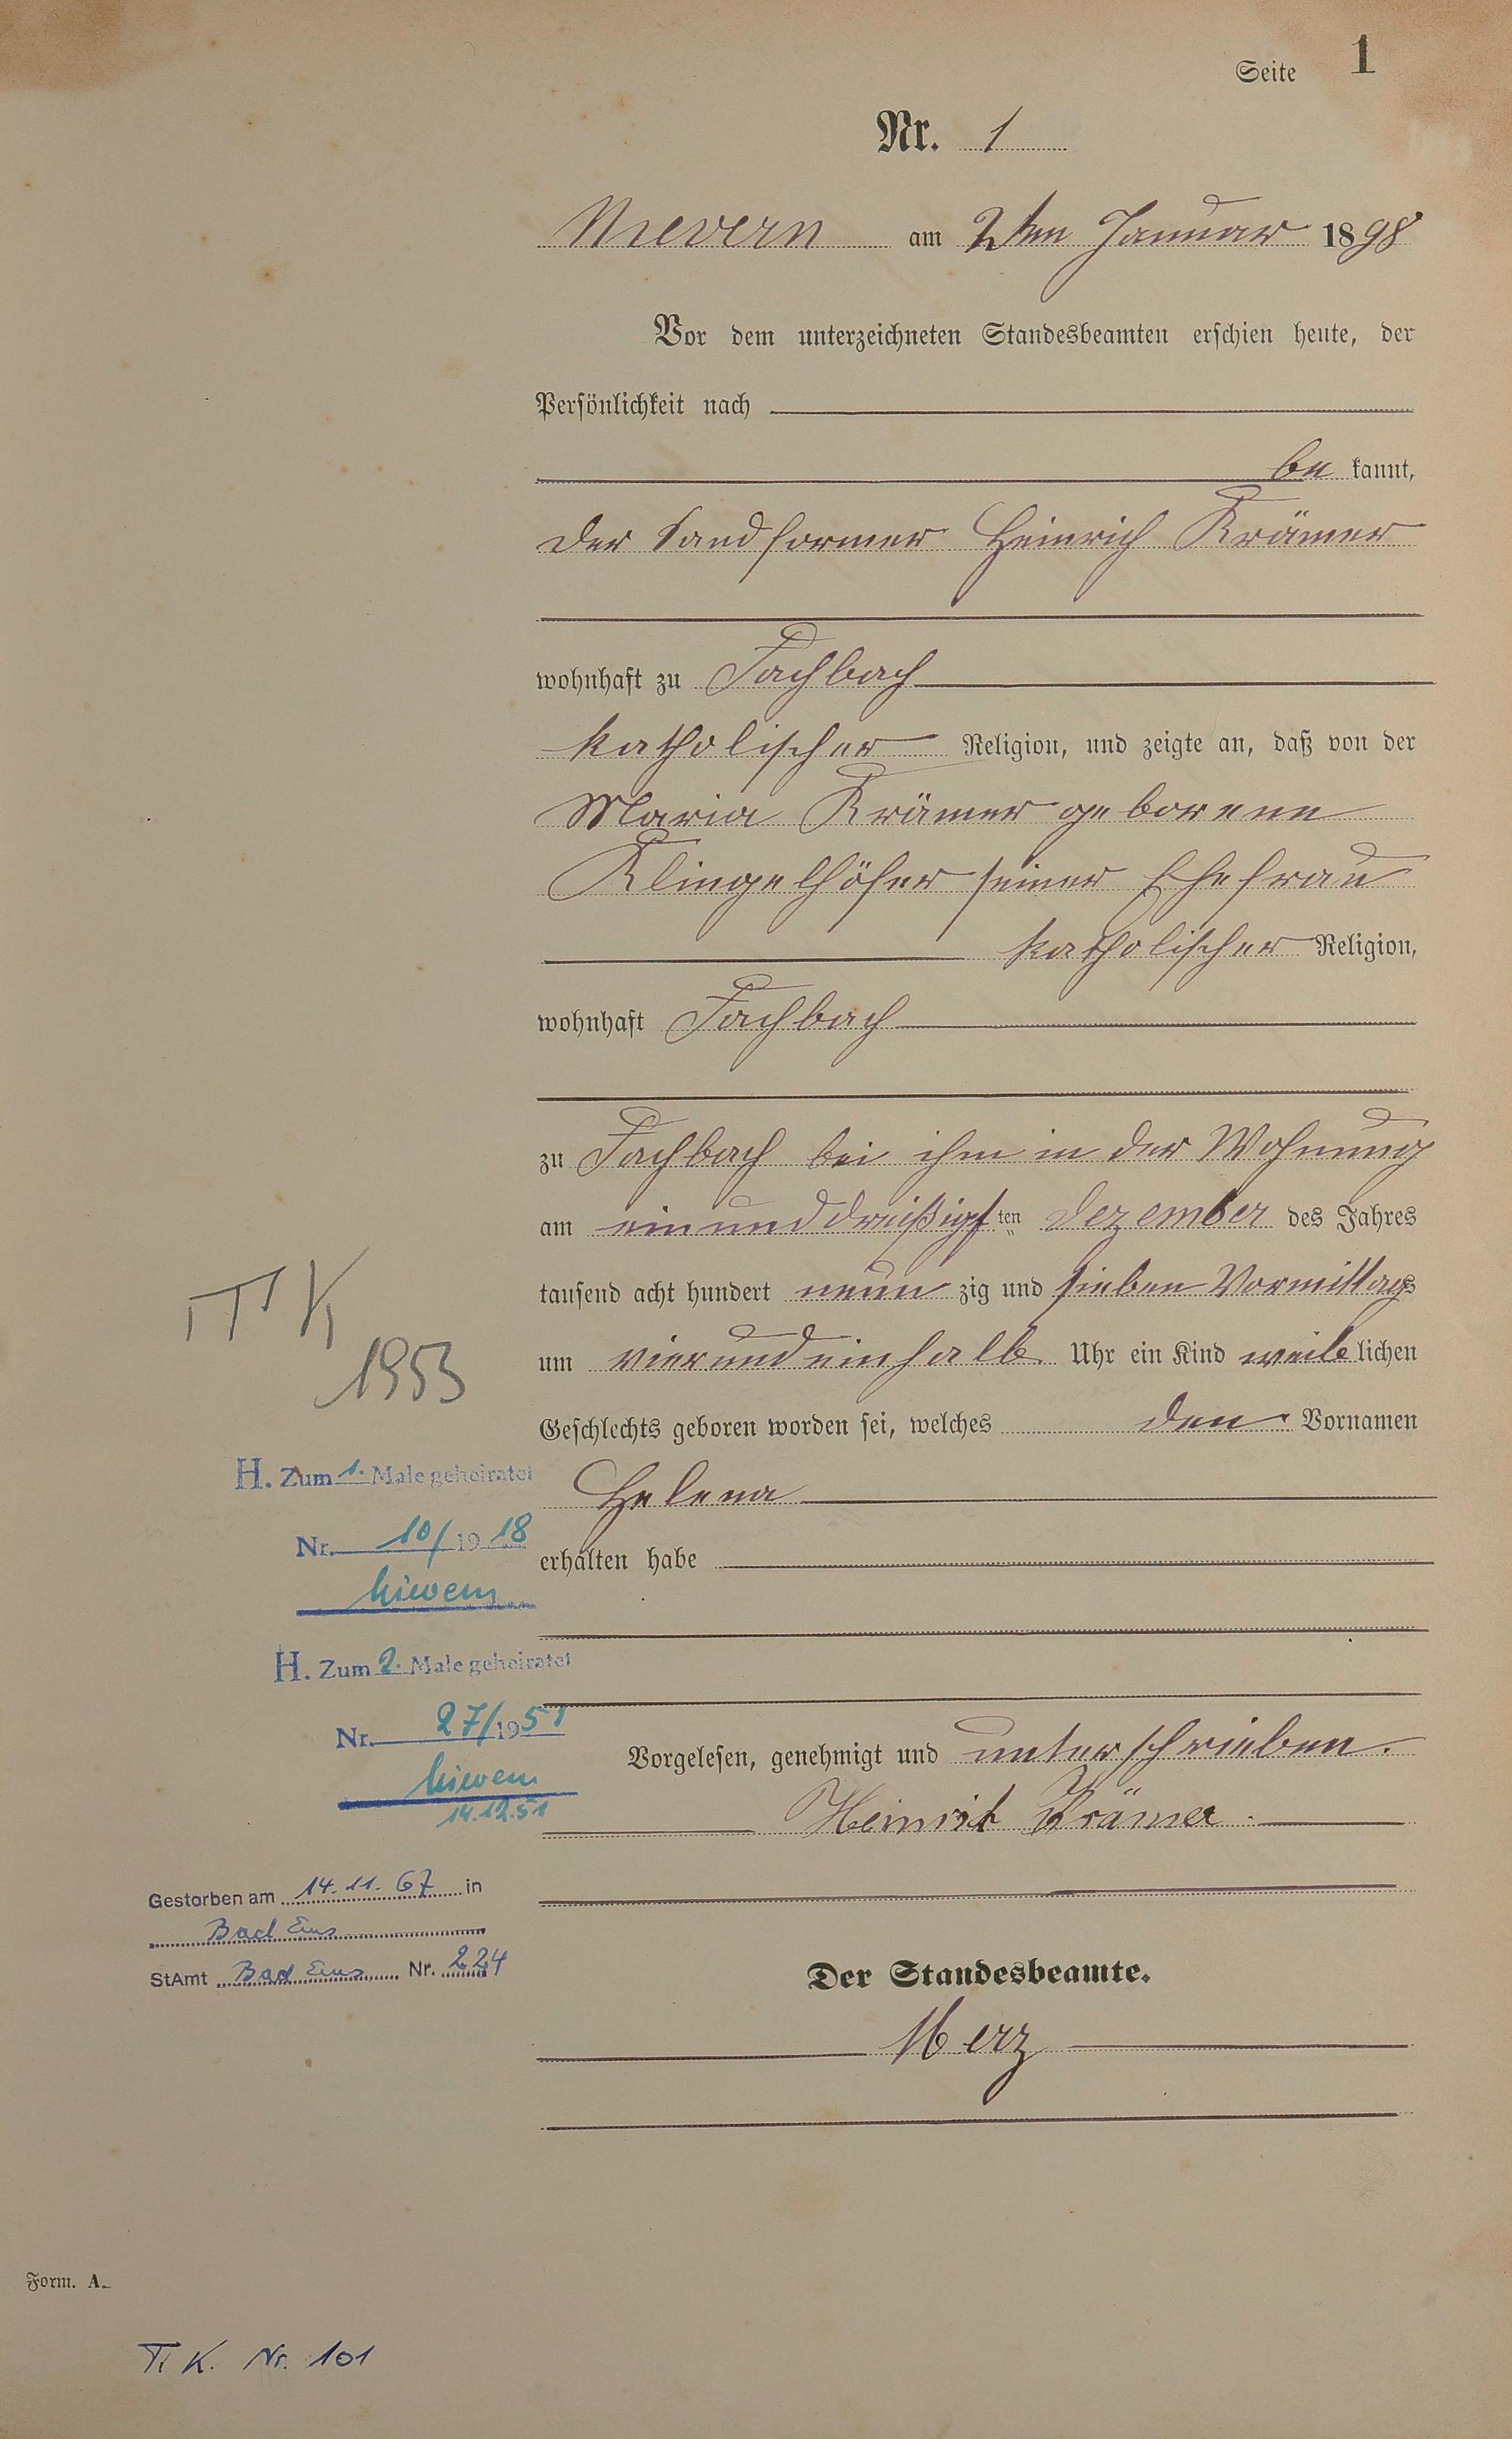 Seite 1
Nr. 1
Nievern am 2ten Januar 1898
Vor dem unterzeichneten Standesbeamten erschien heute, der
Persönlichkeit nach
be kannt,
der Sandformer Heinrich Krämer
wohnhaft zu Fachbach
katholischer Religion, und zeigte an, daß von der
Maria Krämer geborene
Klingelhöfer seiner Ehefrau
katholischer Religion,
wohnhaft Fachbach
zu Fachbach bei ihm in der Wohnung
am einunddreißigsten Dezember des Jahres
tausend acht hundert neun zig und sieben Vormittags
um vierundeinhalb Uhr ein Kind weiblichen
Geschlechts geboren worden sei, welches den Vornamen
Helena
erhalten habe
Vorgelesen, genehmigt und unterschrieben.
Heinrich Krämer.
Der Standesbeamte.
Merz
TK
1953
H. Zum 1. Male geheiratet
Nr. 10/1918
Nievern
H. Zum 2. Male geheiratet
Nr. 27/1951
Nievern
14.12.51
Gestorben am 14.11.67 in
Bad Ems
StAmt Bad Ems Nr. 224
Form. A.
T. K. Nr. 101